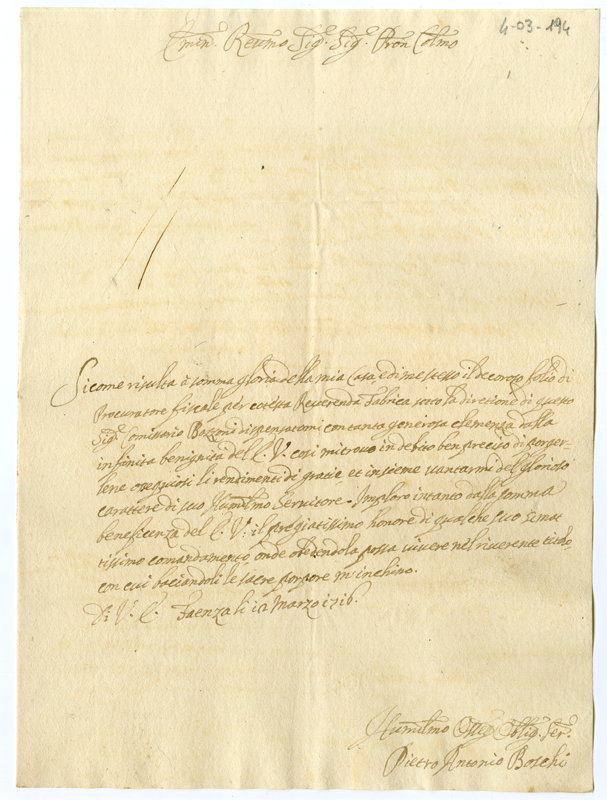 4-03-194
Emin.e Reumo Sig.e Sig.e Pron Colmo
Sicome risulta à somma gloria della mia Casa, e di me stesso il decoroso folio di
Procuratore fiscale per cotesta Reverenda Fabrica sotto la direzione di questo
Sig.r Comissario Bozzoni dispensatomi con tanta generosa clemenza dalla
infinita benignità del E. V. così mi trovo in debito ben preciso di porger-
lene ossequiosi li rendimenti di gracie et insieme vantarmi del glorioso
carattere di suo Humilmo Servitore - Imploro intanto dalla somma
beneficenza del E. V: il pregiatissimo honore di qualche suo stimat
tissimo comandamento, onde obedendola possa vivere nel riverente titolo,
con cui baciandoli le sacre porpore m'inchino.
Di V. E. Faenza li 12 Marzo 1716.
Humilmo Osseq. Oblig. Ser.
Pietro Antonio Boschi